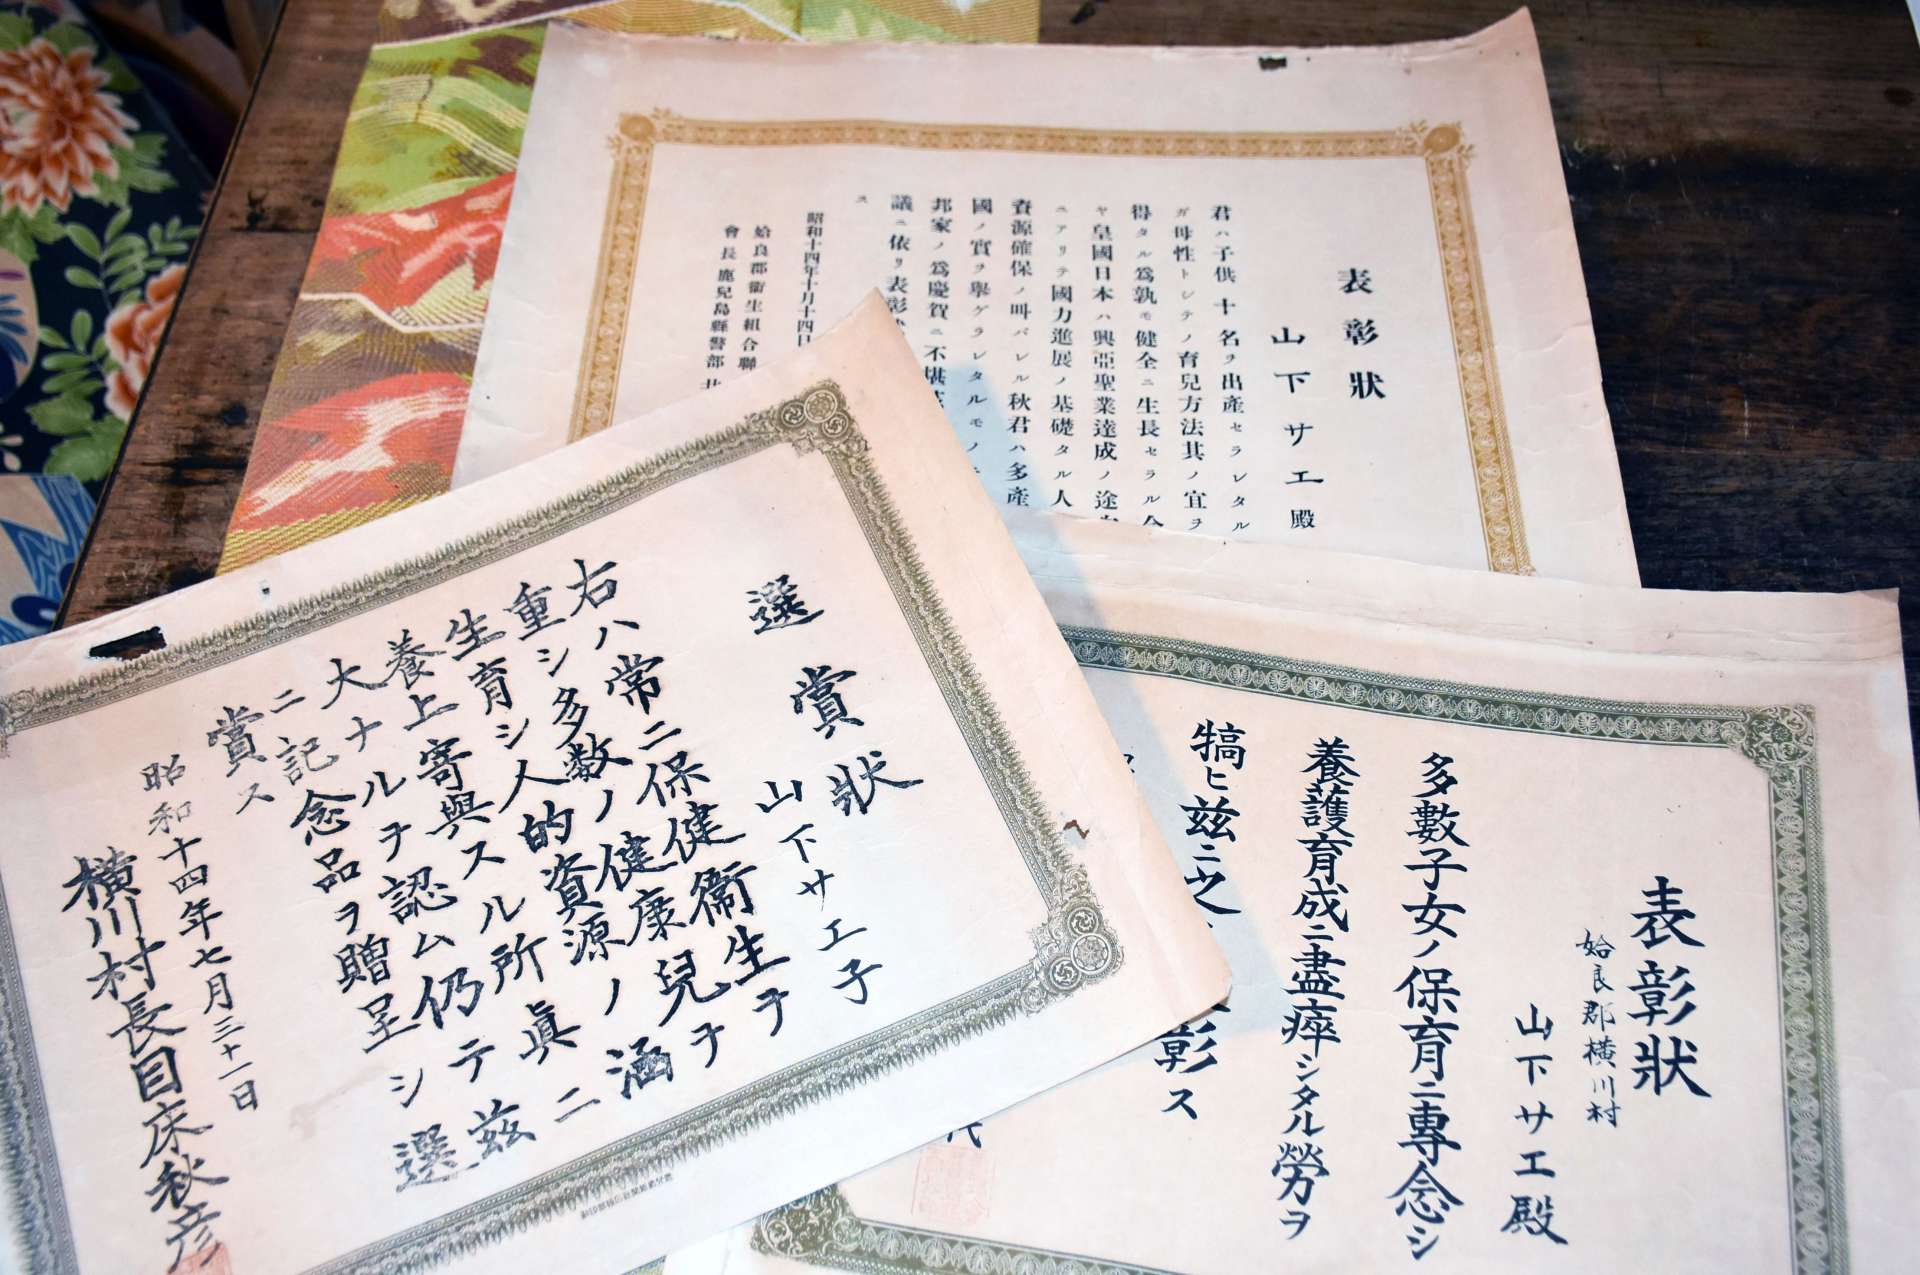 表彰狀
山下サエ殿
君ハ子供十名ヲ出産セラレタル
ガ母性トシテノ育兒方法其ノ宜ヲ
得タル爲孰モ健全ニ生長セラル今
ヤ皇國日本ハ興亞聖業達成ノ途
ニアリテ國力進展ノ基礎タル人
資源確保ノ叫バレル秋君ハ多產
國ノ實ヲ擧ゲラレタルモノ
邦家ノ爲慶賀ニ不堪
議ニ依リ表彰
ス
昭和十四年十月十四日
姶良郡衞生組合聯
會長鹿兒島縣警部
選賞狀
山下サエ子
右ハ常ニ保健衞生ヲ
重シ多数ノ健康兒ヲ
生育シ人的資源ノ涵
養上寄與スル所眞ニ
大ナルヲ認ム仍テ茲
ニ記念品ヲ贈呈シ選
賞ス
昭和十四年七月三十一日
横川村長目床秋彦
表彰狀
姶良郡横川村
山下サエ殿
多數子女ノ保育ニ專念シ
養護育成ニ盡瘁シタル勞ヲ
犒ヒ茲ニ之
彰ス